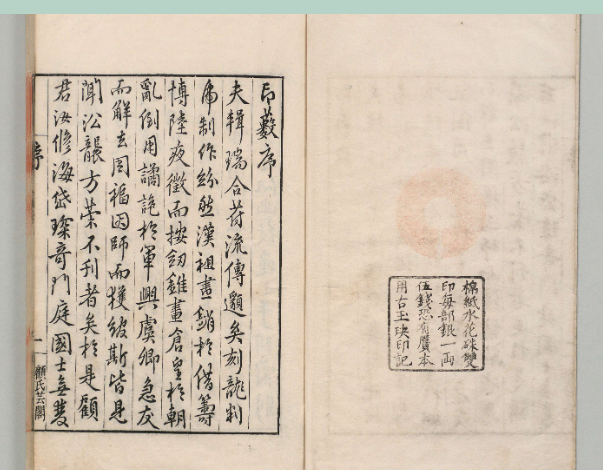 棉紙水花硃雙
印每部銀一兩
伍錢恐有贗本
用古玉玦印記
印藪序
夫輯瑞合苻流傳邈矣刻龍判
虎制作紛然漢祖畫銷於借籌
博陸夜徵而按劒錐畫倉皇於朝
亂倒用譎詭於軍興虞卿急友
而解去周福因師而獲綬斯皆見
聞方策不刊者矣於是顧
君汝脩海岱琛奇門庭國士無雙
序
一
顧氏芸閣